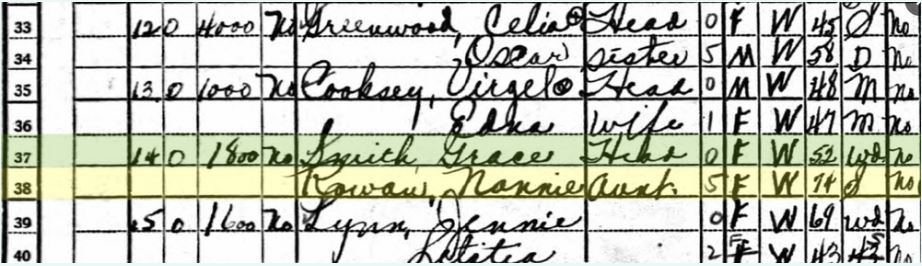 33 120 4000 No Greenwood, Celia Head 0 F W 45 S No
34 , Oscar Sister 5 M W 58 D No
35 130 1000 No Cooksey, Virgel Head 0 M W 48 M No
36 , Edna Wife 1 F W 47 M No
37 140 1800 No Smith Grace Head 0 F W 52 Wd No
38 Rowan, Nannie Aunt 5 F W 74 S No
39 150 1600 No Lynn, Jennie 0 F W 69 Wd No
40 2 F W 43 S No